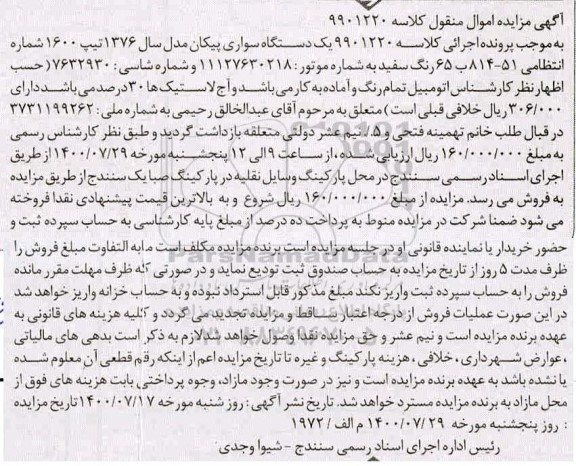 آگهی مزایده اموال منقول کلاسه ۹۹۰۱۲۲۰
به موجب پرونده اجرائی کلاسه ۹۹۰۱۲۲۰ یک دستگاه سواری پیکان مدل سال ۱۳۷۶ تیپ ۱۶۰۰ شماره
انتظامی ۵۱-۸۱۴ ب ۶۵ رنگ سفید به شماره موتور: ۱۱۱۲۷۶۳۰۲۱۸ و شماره شاسی: ۷۶۳۲۹۳۰ (حسب
اظهار نظر کارشناس اتومبیل تمام رنگ و آماده به کار می باشد و آج لاستیک ها ۳۰ درصد می باشد دارای
۳۰۶/۰۰۰ ریال خلافی قبلی است) متعلق به مرحوم آقای عبدالخالق رحیمی به شماره ملی: ۳۷۳۱۱۹۹۲۶۲
در قبال طلب خانم تهمینه فتحی و ۵/. نیم عشر دولتی متعلقه بازداشت گردید و طبق نظر کارشناس رسمی
به مبلغ ۱۶۰/۰۰۰/۰۰۰ ریال ارزیابی شده، از ساعت ۹ الی ۱۲ پنجشنبه مورخه ۱۴۰۰/۰۷/۲۹ از طریق
اجرای اسناد رسمی سنندج در محل پارکینگ وسایل نقلیه در پارکینگ صبا یک سنندج از طریق مزایده
به فروش می رسد. مزایده از مبلغ ۱۶۰/۰۰۰/۰۰۰ ریال شروع و به بالاترین قیمت پیشنهادی نقدا فروخته
می شود ضمنا شرکت در مزایده منوط به پرداخت ده درصد از مبلغ پایه کارشناسی به حساب سپرده ثبت و
حضور خریدار یا نماینده قانونی او در جلسه مزایده است برنده مزایده مکلف است مابه التفاوت مبلغ فروش را
ظرف مدت ۵ روز از تاریخ مزایده به حساب صندوق ثبت تودیع نماید و در صورتی که ظرف مهلت مقرر مانده
فروش را به حساب سپرده ثبت واریز نکند مبلغ مذکور قابل استرداد نبوده و به حساب خزانه واریز خواهد شد
در این صورت عملیات فروش از درجه اعتبار ساقط و مزایده تجدید می گردد و کلیه هزینه های قانونی به
عهده برنده مزایده است و نیم عشر و حق مزایده نقدا وصول خواهد شد لازم به ذکر است بدهی های مالیاتی
،عوارض شهرداری، خلافی، هزینه پارکینگ و غیره تا تاریخ مزایده اعم از اینکه رقم قطعی آن معلوم شده
یا نشده باشد به عهده برنده مزایده است و نیز در صورت وجود مازاد، وجوه پرداختی بابت هزینه های فوق از
محل مازاد به برنده مزایده مسترد خواهد شد. تاریخ نشر آگهی: روز شنبه مورخه ۱۴۰۰/۰۷/۱۷ تاریخ مزایده
: روز پنجشنبه مورخه ۱۴۰۰/۰۷/۲۹ م الف / ۱۹۷۲
رئیس اداره اجرای اسناد رسمی سنندج - شیوا وجدی
ParsNamadData